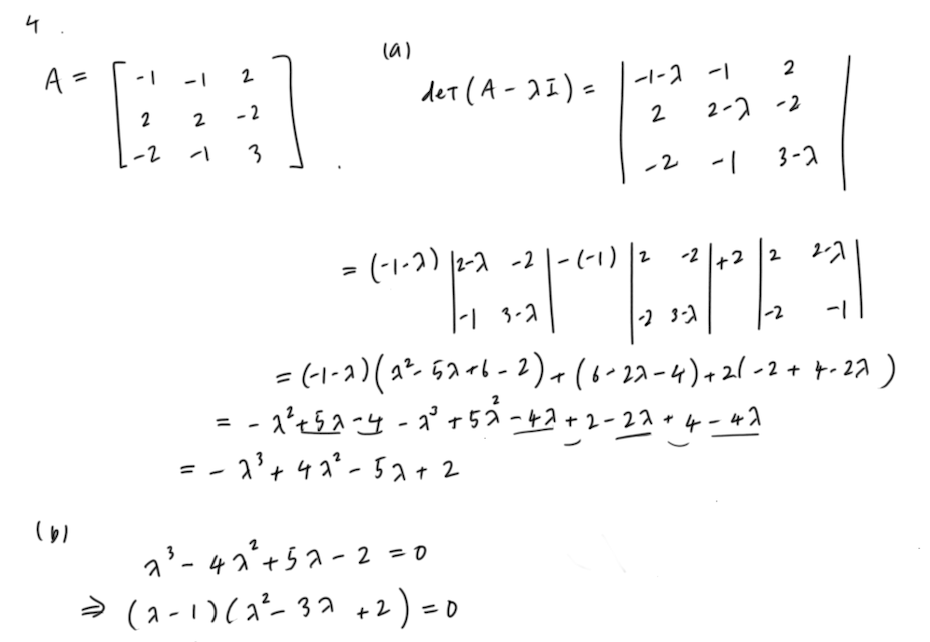 4.
A = [ -1 -1 2
2 2 -2
-2 -1 3 ].
(a)
det(A - λI) = | -1-λ -1 2
2 2-λ -2
-2 -1 3-λ |
= (-1-λ) | 2-λ -2 | - (-1) | 2 -2 | + 2 | 2 2-λ |
| -1 3-λ | | -2 3-λ | | -2 -1 |
= (-1-λ)(λ² - 5λ + 6 - 2) + (6 - 2λ - 4) + 2(-2 + 4 - 2λ)
= - λ² + 5λ - 4 - λ³ + 5λ² - 4λ + 2 - 2λ + 4 - 4λ
= - λ³ + 4λ² - 5λ + 2
(b)
λ³ - 4λ² + 5λ - 2 = 0
⇒ (λ - 1)(λ² - 3λ + 2) = 0